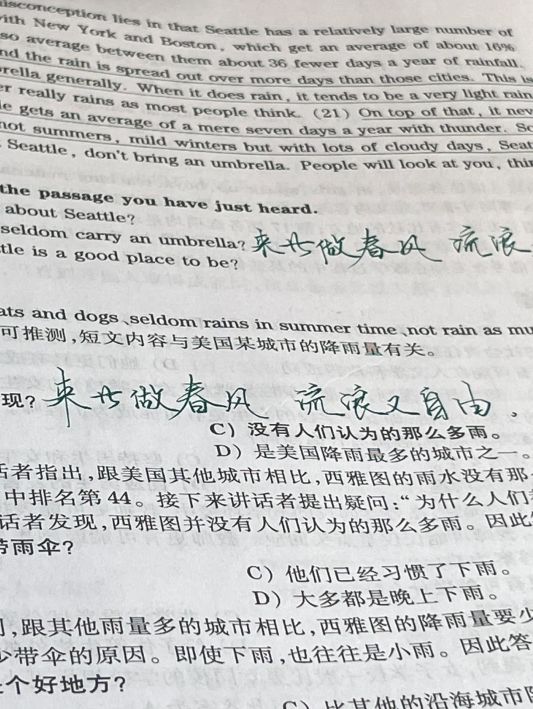 isconception lies in that Seattle has a relatively large number of
ith New York and Boston, which get an average of about 16%
so average between them about 36 fewer days a year of rainfall.
nd the rain is spread out over more days than those cities. This is
rella generally. When it does rain, it tends to be a very light rain
er really rains as most people think. (21) On top of that, it nev
le gets an average of a mere seven days a year with thunder. So
not summers, mild winters but with lots of cloudy days, Seat
Seattle, don't bring an umbrella. People will look at you, thin
the passage you have just heard.
about Seattle?
seldom carry an umbrella? 来世做春风 流浪
tle is a good place to be?
ats and dogs、seldom rains in summer time、not rain as mu
可推测,短文内容与美国某城市的降雨量有关。
现? 来世做春风 流浪又自由.
C) 没有人们认为的那么多雨。
D) 是美国降雨最多的城市之一。
话者指出,跟美国其他城市相比,西雅图的雨水没有那
中排名第 44。接下来讲话者提出疑问:“为什么人们
话者发现,西雅图并没有人们认为的那么多雨。因此
带雨伞?
C) 他们已经习惯了下雨。
D) 大多都是晚上下雨。
,跟其他雨量多的城市相比,西雅图的降雨量要少
少带伞的原因。即使下雨,也往往是小雨。因此答
个好地方?
C) 比其他的沿海城市